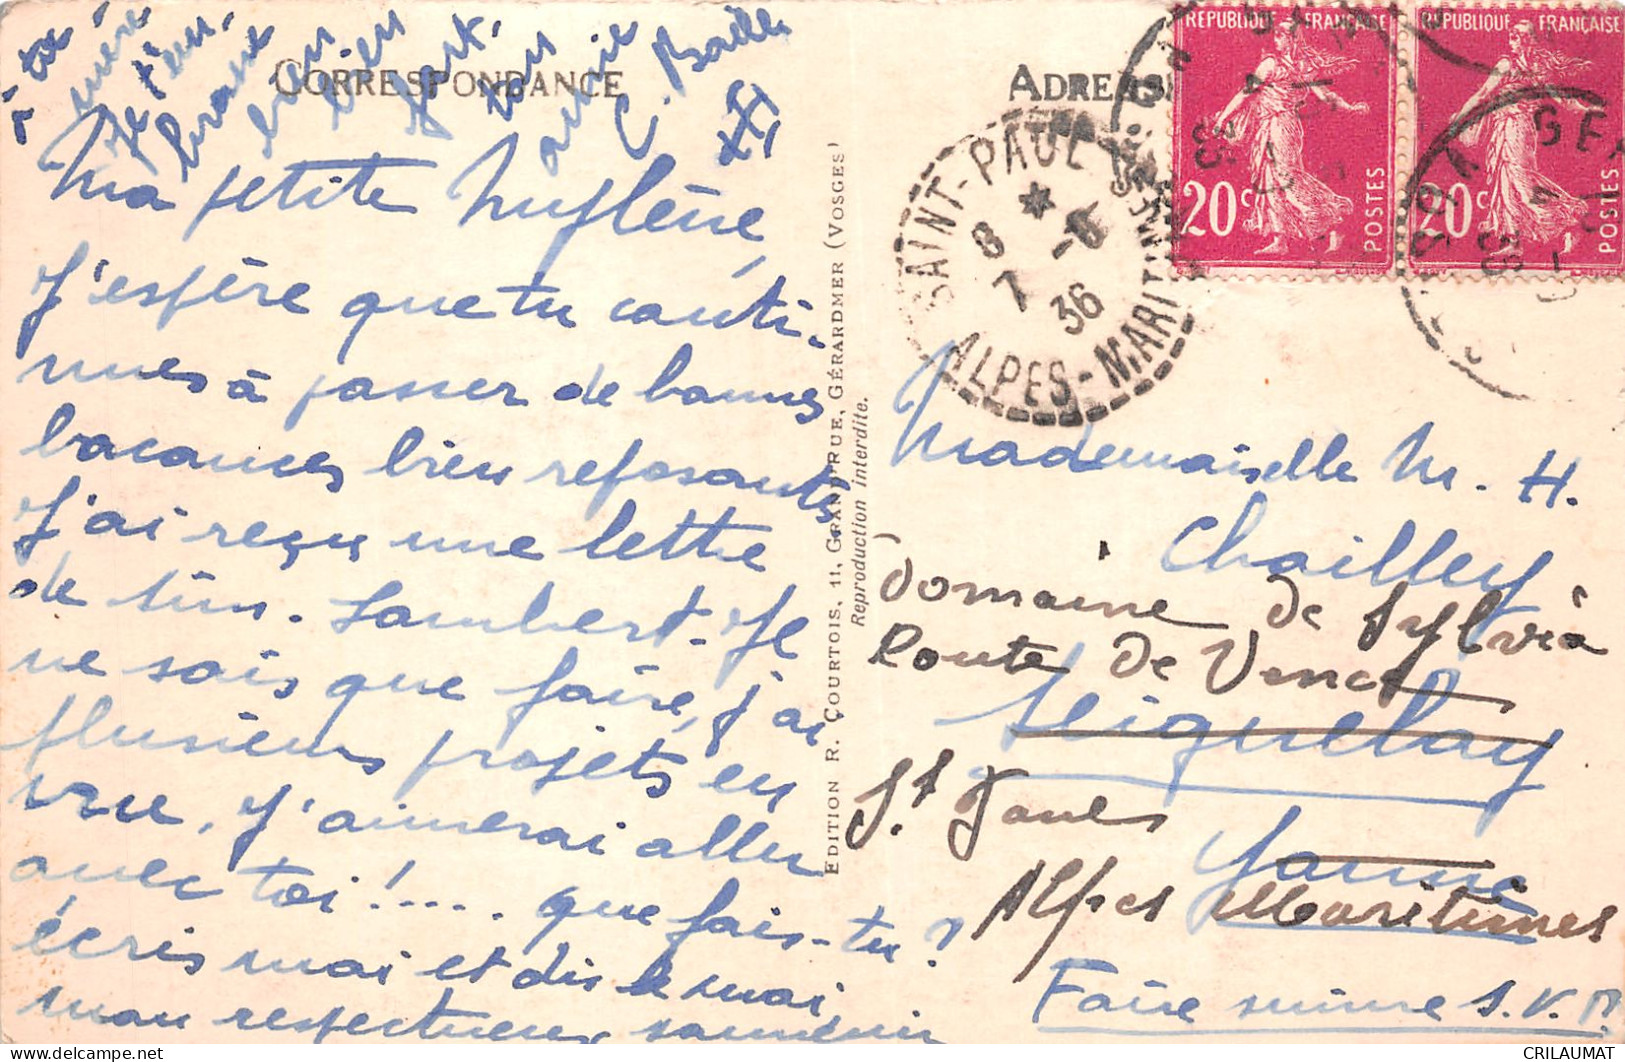 CORRESPONDANCE
Ma petite
J'espère que tu conti-
nues à passer de bonnes
vacances bien reposantes
J'ai reçu une lettre
de Lambert. Je
ne sais que faire, j'ai
plusieurs projets en
vue, J'aimerai aller
avec toi !..... que fais-tu ?
écris moi et dis le moi
mon respectueux souvenir
à ta
mère
Je t'em-
brasse
bien
bien
fort,
ton
amie
C.
EDITION R. COURTOIS, 11, GRAND'RUE, GÉRARDMER (VOSGES)
Reproduction interdite.
ADRESSE
SAINT-PAUL
ALPES-MARITIMES
8 * -8
7 36
RÉPUBLIQUE FRANÇAISE
20c
POSTES
RÉPUBLIQUE FRANÇAISE
20c
POSTES
Mademoiselle M. H.
Chailley
Domaine de Sylvia
Route de Vence
Seignelay
St Paul
Yonne
Alpes Maritimes
Faire suivre S.V.P.
CRILAUMAT